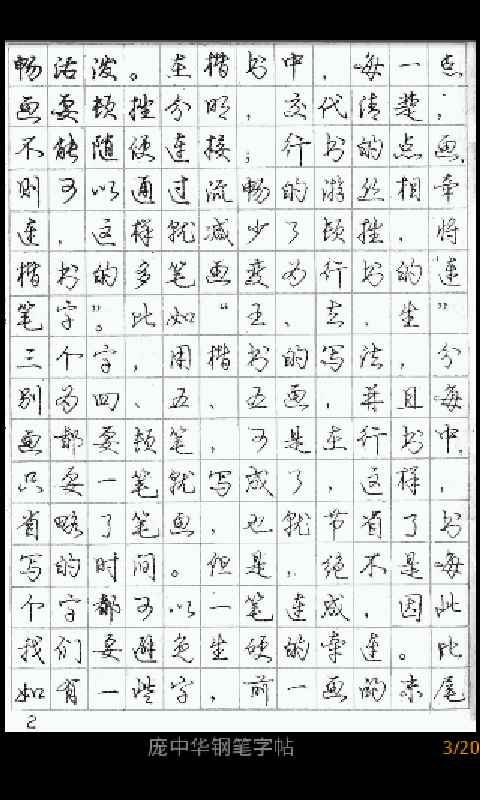 畅活泼。在楷书中，每一点
画要顿挫分明，交代清楚，
不能随便连接；行书的点画，
则可以通过流畅的游丝相牵
连，这样就减少了顿挫，将
楷书的多笔画变为行书的“连
笔字”。比如“王、去、生”
三个字，用楷书的写法，分
别为四、五、五画，并且每
画都要顿笔，可是在行书中，
只要一笔就写成了，这样，
省略了笔画，也就节省了书
写的时间。但是，绝不是每
个字都可以一笔连成，因此
我们要避免生硬的牵连。比
如有一些字，前一画的末尾
2
庞中华钢笔字帖
3/20